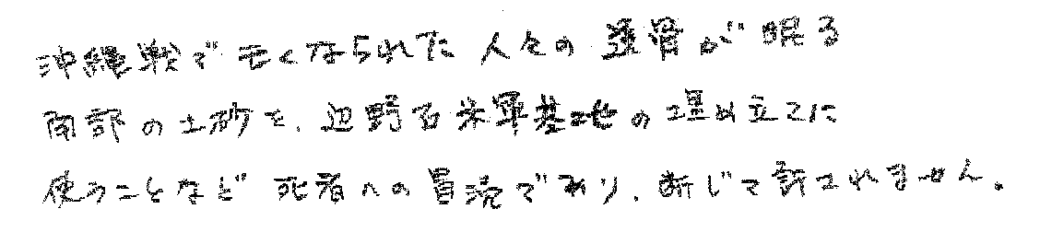 沖縄戦で亡くなられた人々の遺骨が眠る
南部の土砂を、辺野古米軍基地の埋め立てに
使うことなど死者への冒涜であり、断じて許されません。